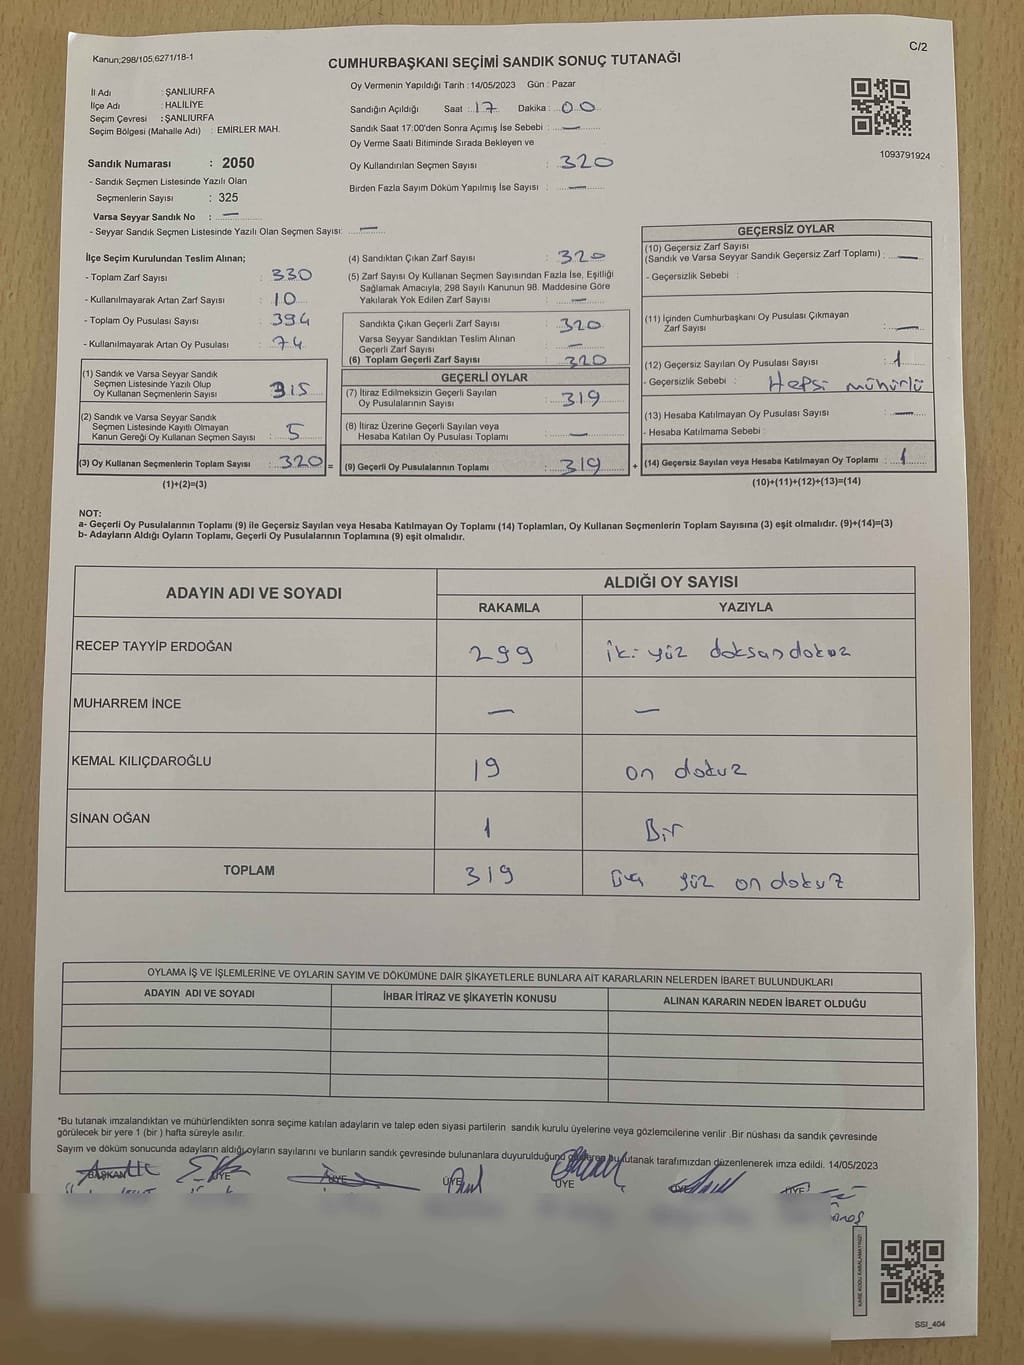 Kanun;298/105,6271/18-1
C/2
CUMHURBAŞKANI SEÇİMİ SANDIK SONUÇ TUTANAĞI
İl Adı : ŞANLIURFA
İlçe Adı : HALİLİYE
Seçim Çevresi : ŞANLIURFA
Seçim Bölgesi (Mahalle Adı) : EMİRLER MAH.
Sandık Numarası : 2050
- Sandık Seçmen Listesinde Yazılı Olan
Seçmenlerin Sayısı : 325
Varsa Seyyar Sandık No : —
- Seyyar Sandık Seçmen Listesinde Yazılı Olan Seçmen Sayısı: —
Oy Vermenin Yapıldığı Tarih : 14/05/2023 Gün : Pazar
Sandığın Açıldığı Saat : 17 Dakika : 00
Sandık Saat 17:00'den Sonra Açımış İse Sebebi : —
Oy Verme Saati Bitiminde Sırada Bekleyen ve
Oy Kullandırılan Seçmen Sayısı : 320
Birden Fazla Sayım Döküm Yapılmış İse Sayısı : —
1093791924
İlçe Seçim Kurulundan Teslim Alınan;
- Toplam Zarf Sayısı : 330
- Kullanılmayarak Artan Zarf Sayısı : 10
- Toplam Oy Pusulası Sayısı : 394
- Kullanılmayarak Artan Oy Pusulası : 74
(1) Sandık ve Varsa Seyyar Sandık
Seçmen Listesinde Yazılı Olup
Oy Kullanan Seçmenlerin Sayısı : 315
(2) Sandık ve Varsa Seyyar Sandık
Seçmen Listesinde Kayıtlı Olmayan
Kanun Gereği Oy Kullanan Seçmen Sayısı : 5
(3) Oy Kullanan Seçmenlerin Toplam Sayısı : 320 =
(1)+(2)=(3)
(4) Sandıktan Çıkan Zarf Sayısı : 320
(5) Zarf Sayısı Oy Kullanan Seçmen Sayısından Fazla İse, Eşitliği
Sağlamak Amacıyla, 298 Sayılı Kanunun 98. Maddesine Göre
Yakılarak Yok Edilen Zarf Sayısı : —
Sandıkta Çıkan Geçerli Zarf Sayısı : 320
Varsa Seyyar Sandıktan Teslim Alınan
Geçerli Zarf Sayısı : —
(6) Toplam Geçerli Zarf Sayısı : 320
GEÇERLİ OYLAR
(7) İtiraz Edilmeksizin Geçerli Sayılan
Oy Pusulalarının Sayısı : 319
(8) İtiraz Üzerine Geçerli Sayılan veya
Hesaba Katılan Oy Pusulası Toplamı : —
(9) Geçerli Oy Pusulalarının Toplamı : 319 +
GEÇERSİZ OYLAR
(10) Geçersiz Zarf Sayısı
(Sandık ve Varsa Seyyar Sandık Geçersiz Zarf Toplamı) : —
- Geçersizlik Sebebi :
(11) İçinden Cumhurbaşkanı Oy Pusulası Çıkmayan
Zarf Sayısı : —
(12) Geçersiz Sayılan Oy Pusulası Sayısı : 1
- Geçersizlik Sebebi : Hepsi mühürlü
(13) Hesaba Katılmayan Oy Pusulası Sayısı : —
- Hesaba Katılmama Sebebi :
(14) Geçersiz Sayılan veya Hesaba Katılmayan Oy Toplamı : 1
(10)+(11)+(12)+(13)=(14)
NOT:
a- Geçerli Oy Pusulalarının Toplamı (9) ile Geçersiz Sayılan veya Hesaba Katılmayan Oy Toplamı (14) Toplamları, Oy Kullanan Seçmenlerin Toplam Sayısına (3) eşit olmalıdır. (9)+(14)=(3)
b- Adayların Aldığı Oyların Toplamı, Geçerli Oy Pusulalarının Toplamına (9) eşit olmalıdır.
ADAYIN ADI VE SOYADI
ALDIĞI OY SAYISI
RAKAMLA YAZIYLA
RECEP TAYYİP ERDOĞAN 299 iki yüz doksan dokuz
MUHARREM İNCE — —
KEMAL KILIÇDAROĞLU 19 on dokuz
SİNAN OĞAN 1 Bir
TOPLAM 319 üç yüz on dokuz
OYLAMA İŞ VE İŞLEMLERİNE VE OYLARIN SAYIM VE DÖKÜMÜNE DAİR ŞİKAYETLERLE BUNLARA AİT KARARLARIN NELERDEN İBARET BULUNDUKLARI
ADAYIN ADI VE SOYADI İHBAR İTİRAZ VE ŞİKAYETİN KONUSU ALINAN KARARIN NEDEN İBARET OLDUĞU
*Bu tutanak imzalandıktan ve mühürlendikten sonra seçime katılan adayların ve talep eden siyasi partilerin sandık kurulu üyelerine veya gözlemcilerine verilir .Bir nüshası da sandık çevresinde
görülecek bir yere 1 (bir ) hafta süreyle asılır.
Sayım ve döküm sonucunda adayların aldığı oyların sayılarını ve bunların sandık çevresinde bulunanlara duyurulduğunu gösteren bu tutanak tarafımızdan düzenlenerek imza edildi. 14/05/2023
BAŞKAN ÜYE ÜYE ÜYE ÜYE ÜYE ÜYE
KARE KODU KARALAMAYINIZ!
SSI_404